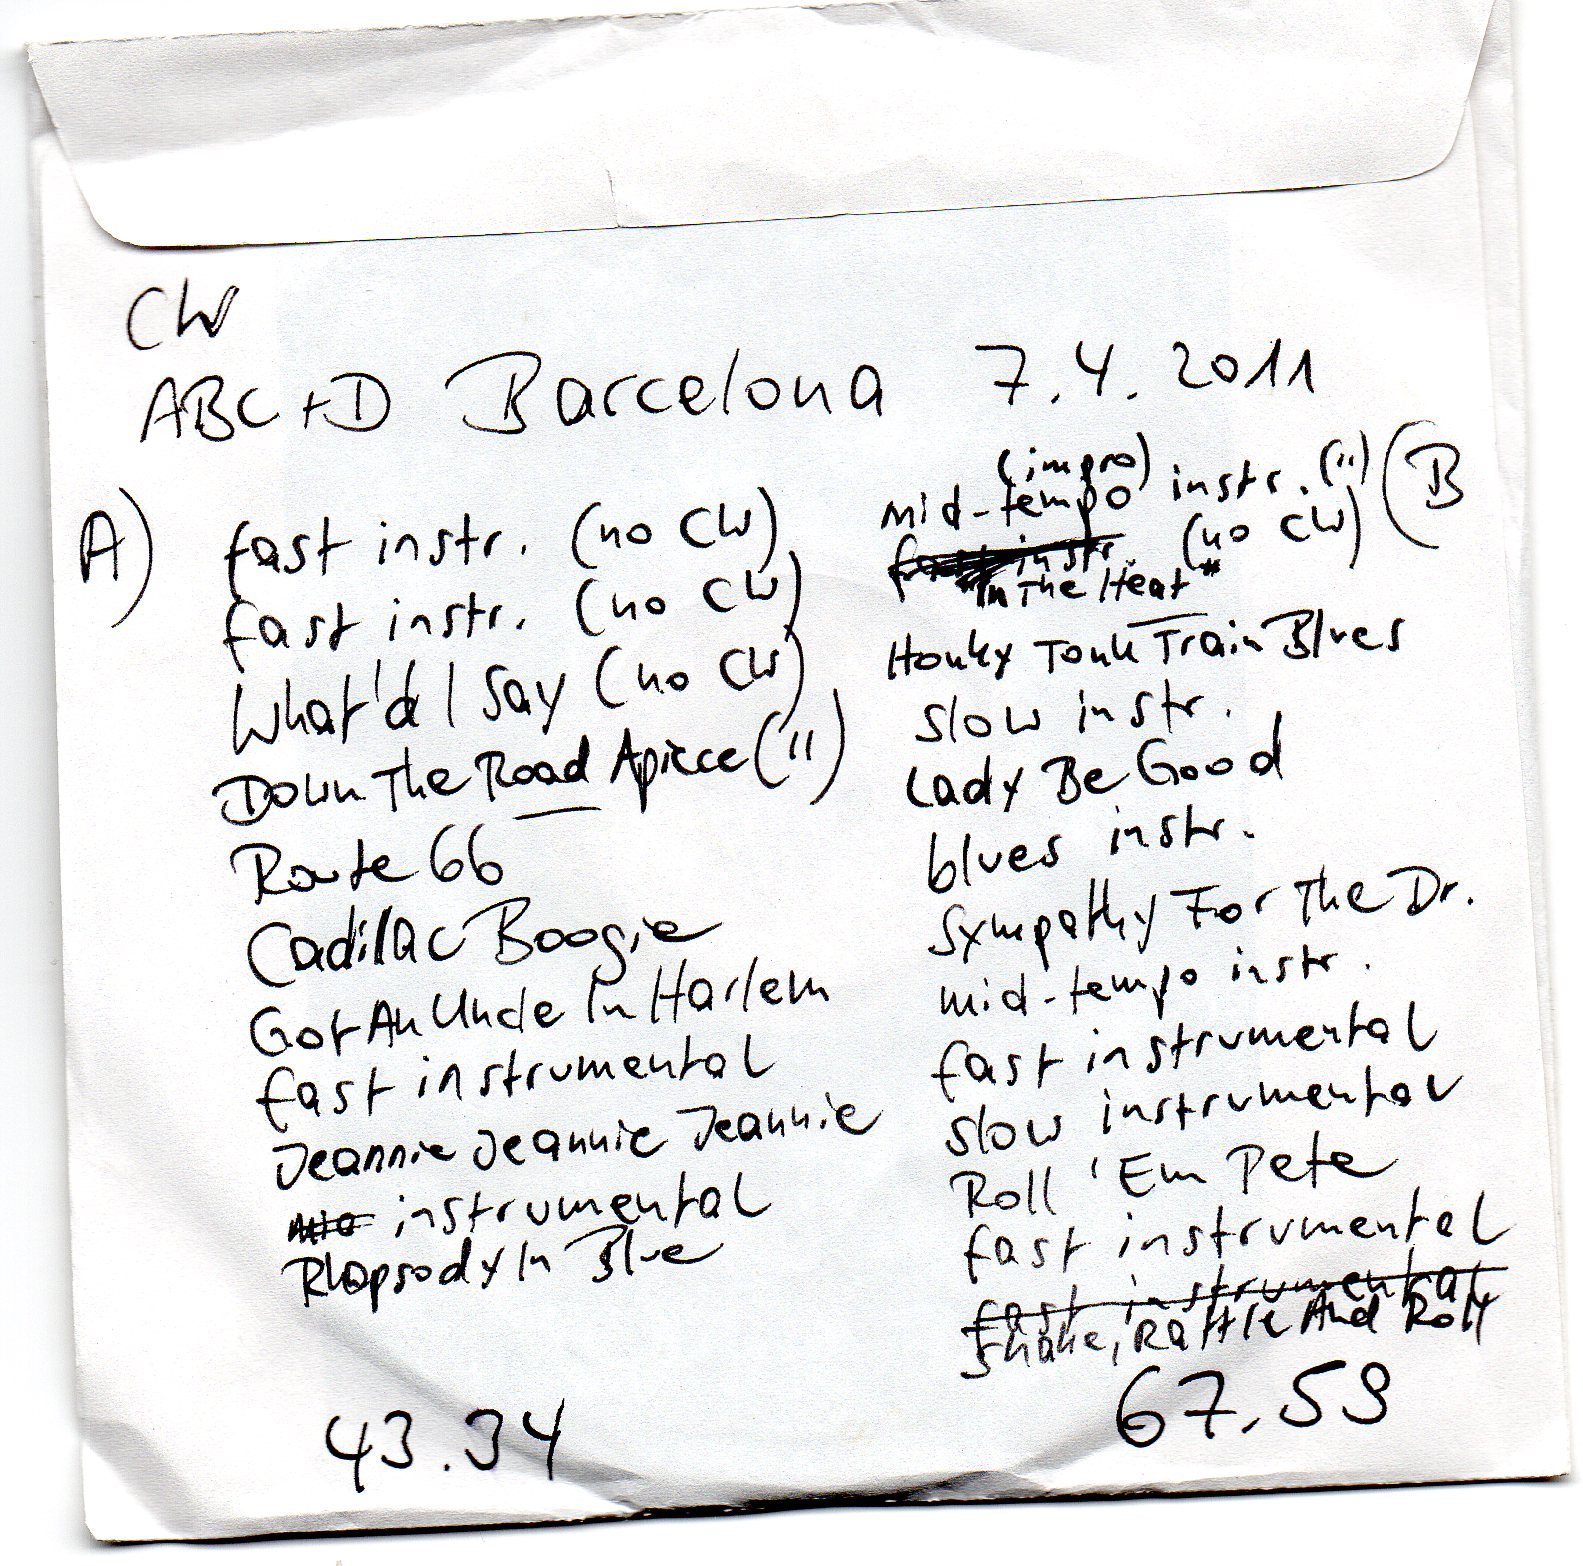 CW
ABC+D Barcelona 7.4.2011
A)
fast instr. (no CW)
fast instr. (no CW)
What'd I Say (no CW)
Down The Road Apiece (")
Route 66
Cadillac Boogie
Got An Uncle In Harlem
fast instrumental
Jeannie Jeannie Jeannie
instrumental
Rhapsody In Blue
43.34
(B
(impro)
mid-tempo instr. (")
instr. (no CW)
"In The Heat"
Honky Tonk Train Blues
slow instr.
Lady Be Good
blues instr.
Sympathy For The Dr.
mid-tempo instr.
fast instrumental
slow instrumental
Roll 'Em Pete
fast instrumental
fast instrumental
Shake, Rattle And Roll
67.59